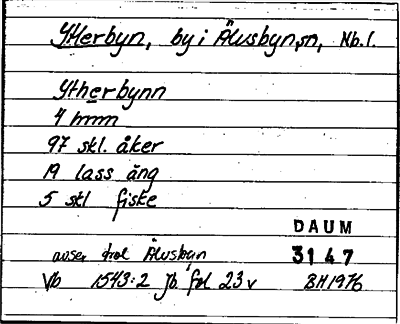 Ytterbyn, by i Älvsbyn sn, Nb.l.
Ytherbynn
4 mmm
97 skl. åker
19 lass äng
5 skl fiske
DAUM
avser trol Älvsbyn 3147
Vb 1543:2 Jb. fol 23v BH 1976